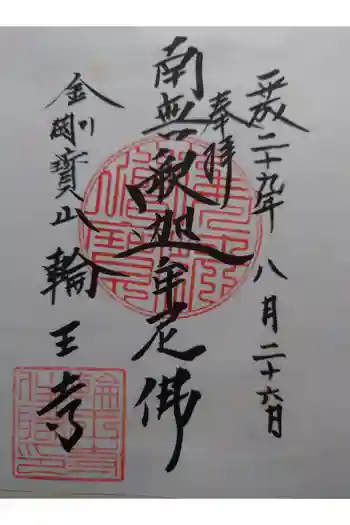 平成二十九年 八月二十六日
奉拝
南無釈迦牟尼佛
金剛寶山
輪王寺